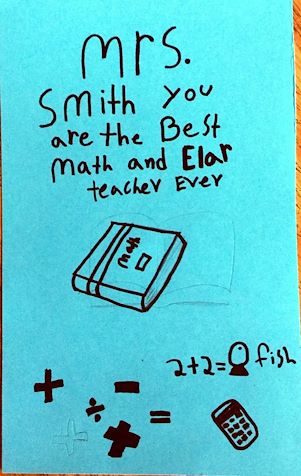 Mrs.
Smith you
are the Best
Math and Elar
teacher Ever
Math
2+2= fish
+ -
÷ × =